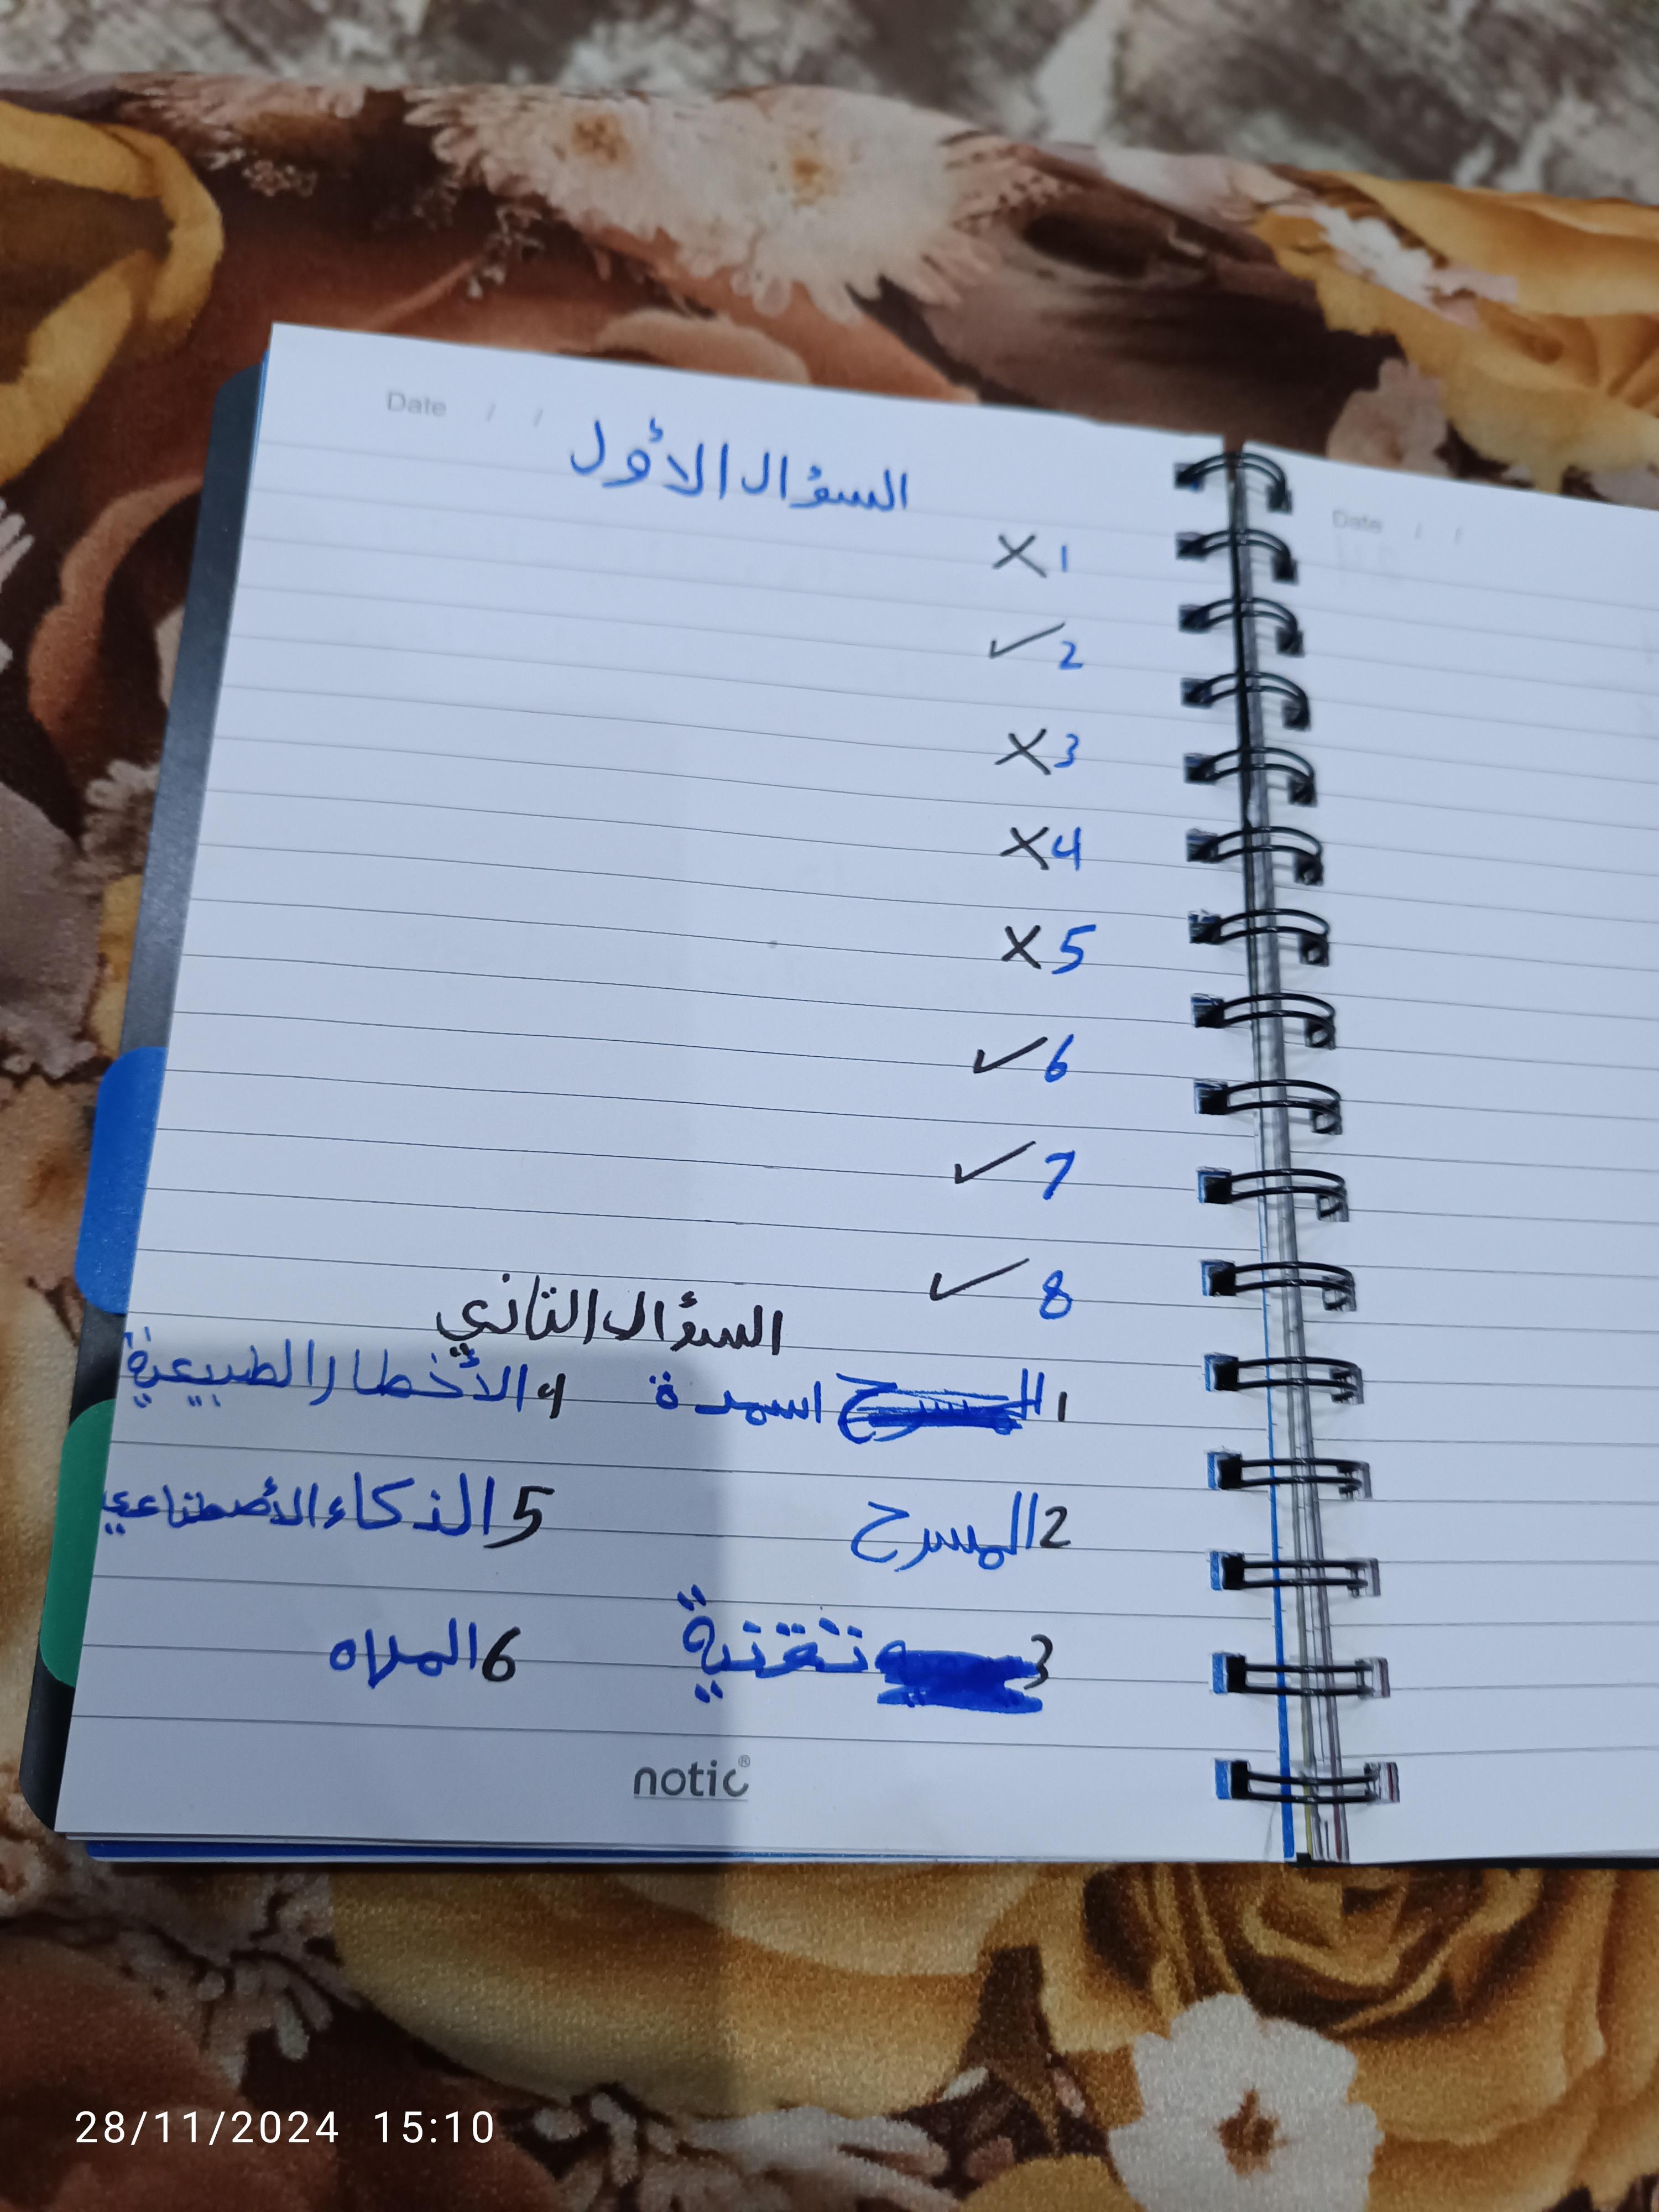 Date / /
السؤال الأول
1 ✗
2 ✓
3 ✗
4 ✗
5 ✗
6 ✓
7 ✓
8 ✓
السؤال الثاني
1 اسمدة 4 الأخطار الطبيعية
2 المسرح 5 الذكاء الأصطناعي
3 تقنية 6
notic®
Date / /
28/11/2024 15:10